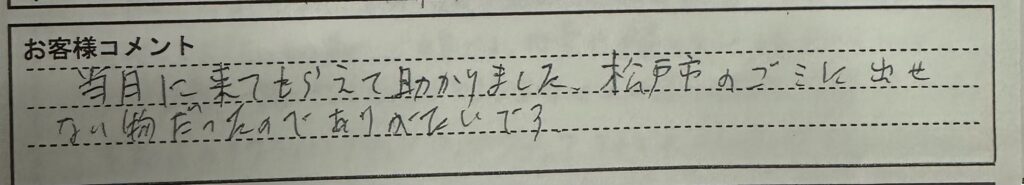 お客様コメント
当月に来てもらえて助かりました、松戸市のゴミに出せ
ない物だったのでありがたいです